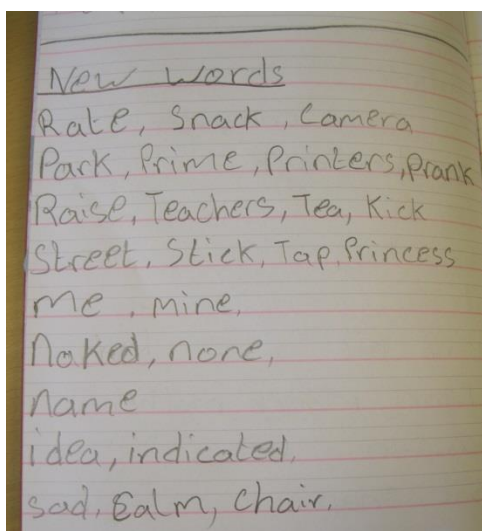 New Words
Rate, Snack, Camera
Park, Prime, Printers, Prank
Raise, Teachers, Tea, Kick
Street, Stick, Tap, Princess
me, mine,
Naked, none,
name
idea, indicated,
sad, Calm, Chair.